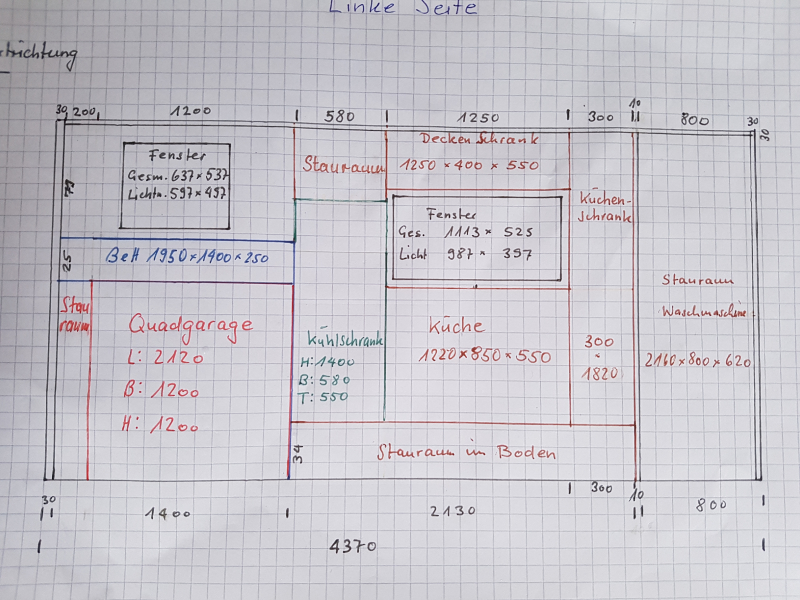 Linke Seite
30 200 1200 580 1250 300 10 800 30
30
Decken Schrank
1250 × 400 × 550
Fenster
Gesm. 637 × 537
Lichtn. 597 × 497
Stauraum
Küchen-
schrank
Fenster
Ges. 1113 × 525
Licht 987 × 397
79
25
Bett 1950 × 1400 × 250
Stau
raum
Quadgarage
L: 2120
B: 1200
H: 1200
Kühlschrank
H: 1400
B: 580
T: 550
Küche
1220 × 850 × 550
300
1820
Stauraum
Waschmaschine
2160 × 800 × 620
34
Stauraum im Boden
300
30 1400 2130 10 800
4370